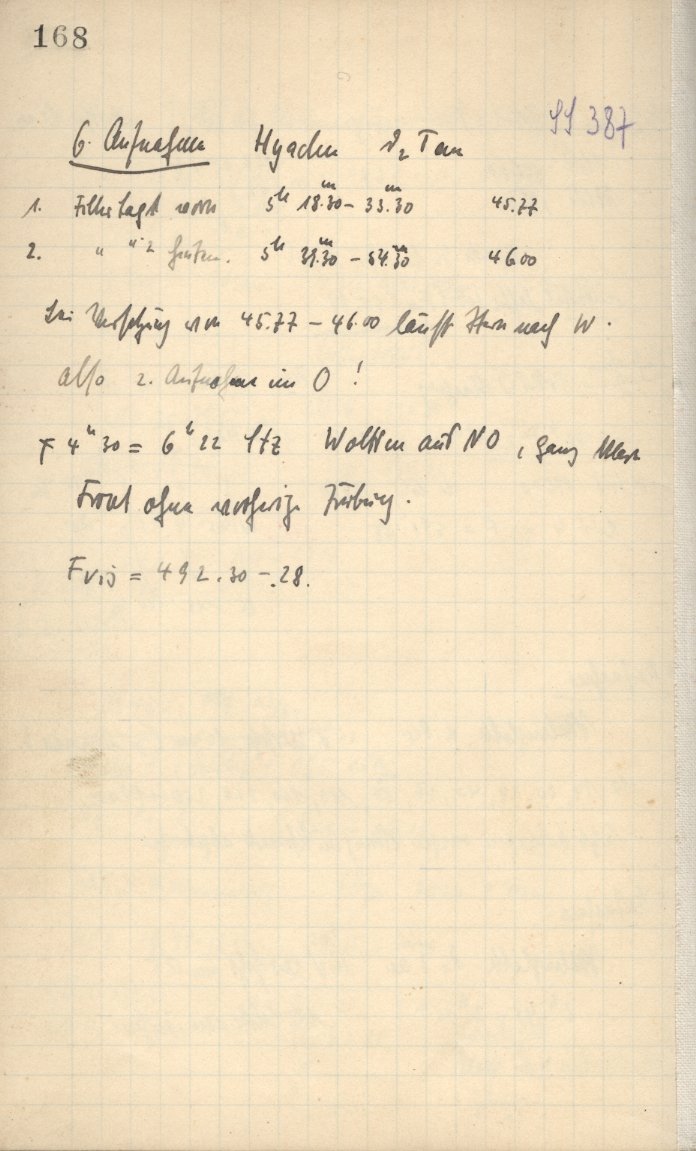 168
SS 387
6. Aufnahme Hyaden ϑ₂ Tau
1. Filter sagt vorn 5ʰ 18ᵐ.30 – 33ᵐ.30 45.77
2. " " 2 hinten. 5ʰ 39ᵐ.30 – 54ᵐ.30 46.00
bei von 45.77 – 46.00 läuft Stern nach W.
also 2. Aufnahme im O!
4ʰ 30 = 6ʰ 22 Stz Wolken aus NO, ganz
Front ohne vorherige Trübung.
Fvis = 492.30 – .28.